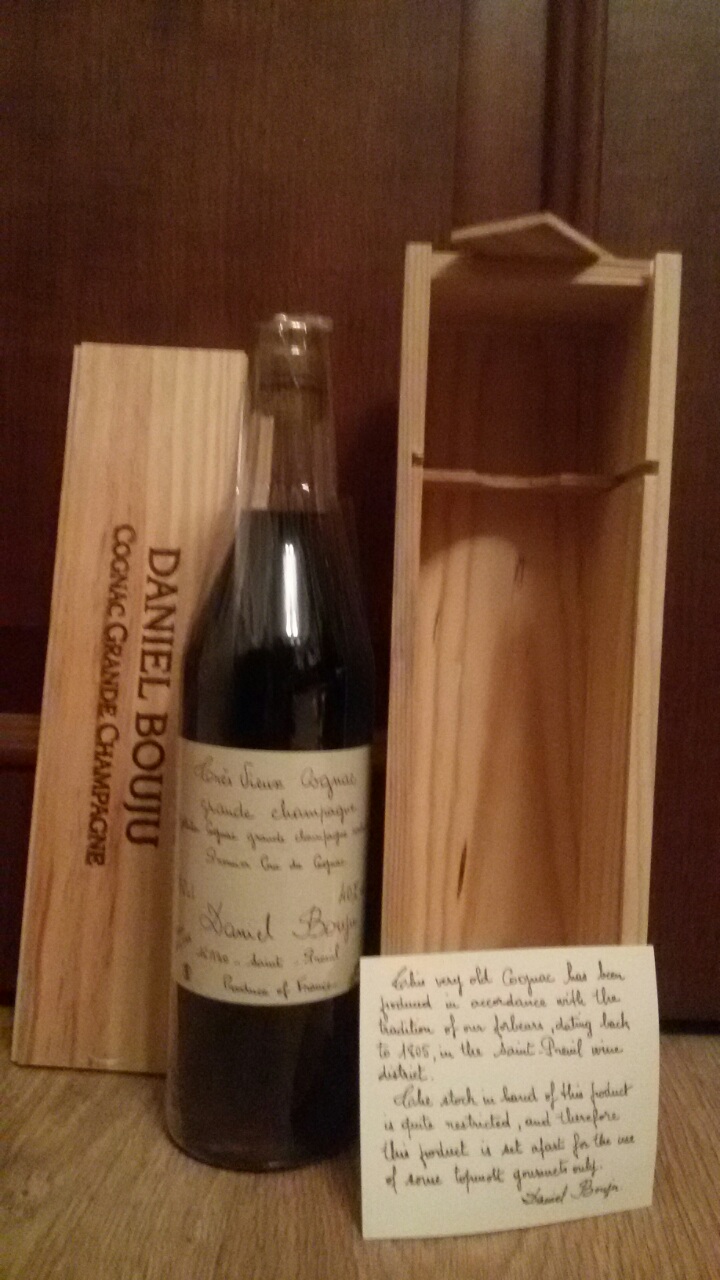 DANIEL BOUJU
COGNAC GRANDE CHAMPAGNE
Très Vieux Cognac
grande champagne
grande champagne
Premier Cru de Cognac
40%
Daniel Bouju
Saint-Preuil
Produce of France
This very old Cognac has been
produced in accordance with the
tradition of our forbears, dating back
to 1805, in the Saint-Preuil wine
district.
The stock in hand of this product
is quite restricted, and therefore
this product is set apart for the use
of some topmost gourmets only.
Daniel Bouju